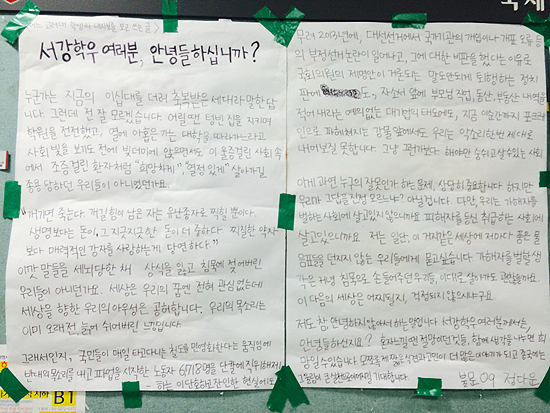 서강학우 여러분, 안녕들하십니까?
누군가는 지금의 이십대를 더러 축복받은 세대라 말한답
니다. 그런데 전 잘 모르겠습니다. 어릴땐 텅빈 집을 지키며
학원을 전전했고, 열에 아홉은 가는 대학을 따라가느라고
사회 빛을 보기도 전에 빚더미에 앉으면서도 이 울증걸린 사회 속
에서 조증걸린 환자처럼 "희망차게" "열정 있게" 살아가길
종용 당하던 우리들이 아니었던가요.
"개기면 죽는다. 개길 힘이 남은 자는 유난종자로 찍힐 뿐이다.
생명보다는 돈이, 그 지긋지긋한 돈이 더 중하다. 찌질한 약자
보다 매력적인 강자를 사랑하는게 당연하다."
이깟 말들을 세뇌당한 채 상식을 잃고 침묵에 젖어버린
우리들이 아니던가요. 세상은 우리의 꿈엔 전혀 관심없는데
세상을 향한 우리의 아우성은 공허합니다. 우리의 목소리는
이미 오래전, 늪에 쉬어버린 느낌입니다
그래서인지, 국민들이 매일 타고다니는 철도를 민영화한다는 움직임에
반대의 목소리를 내고 파업을 시작한 노동자 6,713명을 단칼에 직위해제
하는 이 단호하고 잔인한 현실에도
무려 2013년에, 대선선거에서 국가기관의 개입이나 개표 오류 등
의 부정선거논란이 일어나고, 그에 대한 비판을 했다는 이유로
국회의원의 제명안이 거론되는 말도안되게 퇴행하는 정치
판에도, 자소서 앞에 부모님 직업, 동산, 부동산 내역을
적어 내라는 예의없는 대기업의 태도에도, 지금 이순간까지 포크레
인으로 파헤쳐지는 강물 앞에서도 우리는 악소리 한번 제대로
내어보질 못합니다. 그냥 그런가보다, 해야만 숨쉬고 살수있는 사회
이게 과연 누구의 잘못인가 하는 문제, 상당히 중요합니다 하지만
우리가 그 답을 진정 모르나요? 아닐겁니다. 다만, 우리는 가해자를
벌하는 사회에 살고있지 않으니까요 피해자를 등신 취급하는 사회에
살고있으니까요 저는 일단, 이 거지같은 세상에 저마다 품은 물
음표들을 던지지 않는 우리들에게 묻고싶습니다 가해자를 벌할 생
각은 커녕 침묵으로 손 들어주던 우리들, 이대로 살아가도 괜찮을까요.
이 다음의 세상은 어찌될지, 걱정되지 않으시구요
저도 참 안녕하지 않아서 하는 말입니다 서강학우 여러분께서는,
안녕하신지요?
국문 09 정다운
B1